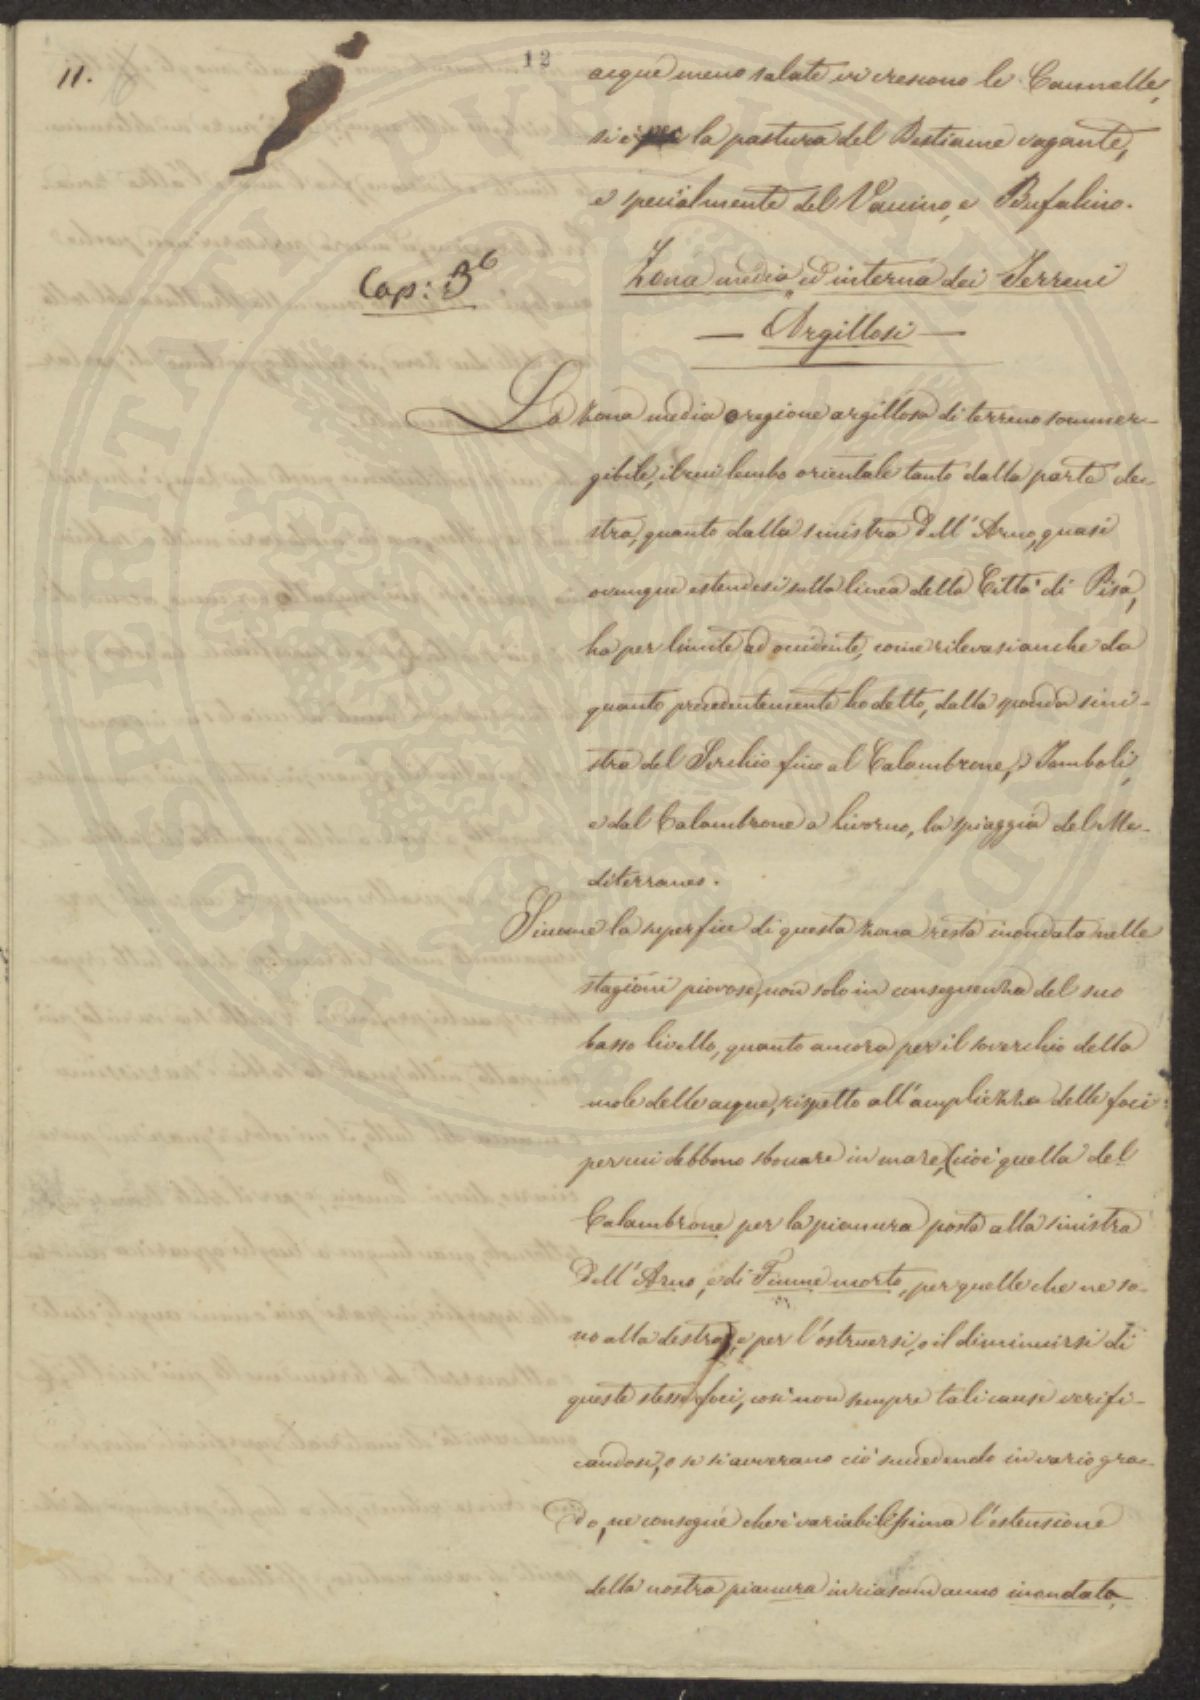 11.
12
acque meno salate vi crescono le Cannelle,
si è la pastura del Bestiame vagante,
e specialmente del Vaccino, e Bufalino.
Cap: 3º
Zona media ed interna dei Terreni
— Argillosi —
La zona media o regione argillosa di terreno sommer-
gibile, il cui lembo orientale tanto dalla parte de-
stra, quanto dalla sinistra dell'Arno, quasi
ovunque estendesi sulla linea della Città di Pisa,
ha per limite ad occidente, come rilevasi anche da
quanto precedentemente ho detto, dalla sponda sini-
stra del Serchio fino al Calambrone, i Tomboli,
e dal Calambrone a Livorno, la spiaggia del Me-
diterraneo.
Siccome la superfice di questa zona resta inondata nelle
stagioni piovose, non solo in conseguenza del suo
basso livello, quanto ancora per il soverchio della
mole delle acque, rispetto all'ampliezza delle foci
per cui debbono sboccare in mare, (cioè quella del
Calambrone per la pianura posta alla sinistra
dell'Arno, e di Fiume morto, per quelle che ne so-
no alla destra), e per l'ostruersi, o il diminuirsi di
queste stesse foci, così non sempre tali cause verifi-
candosi, o se si avverano ciò succedendo in vario gra-
do, ne consegue che è variabilissima l'estensione
della nostra pianura in ciascun anno inondata,